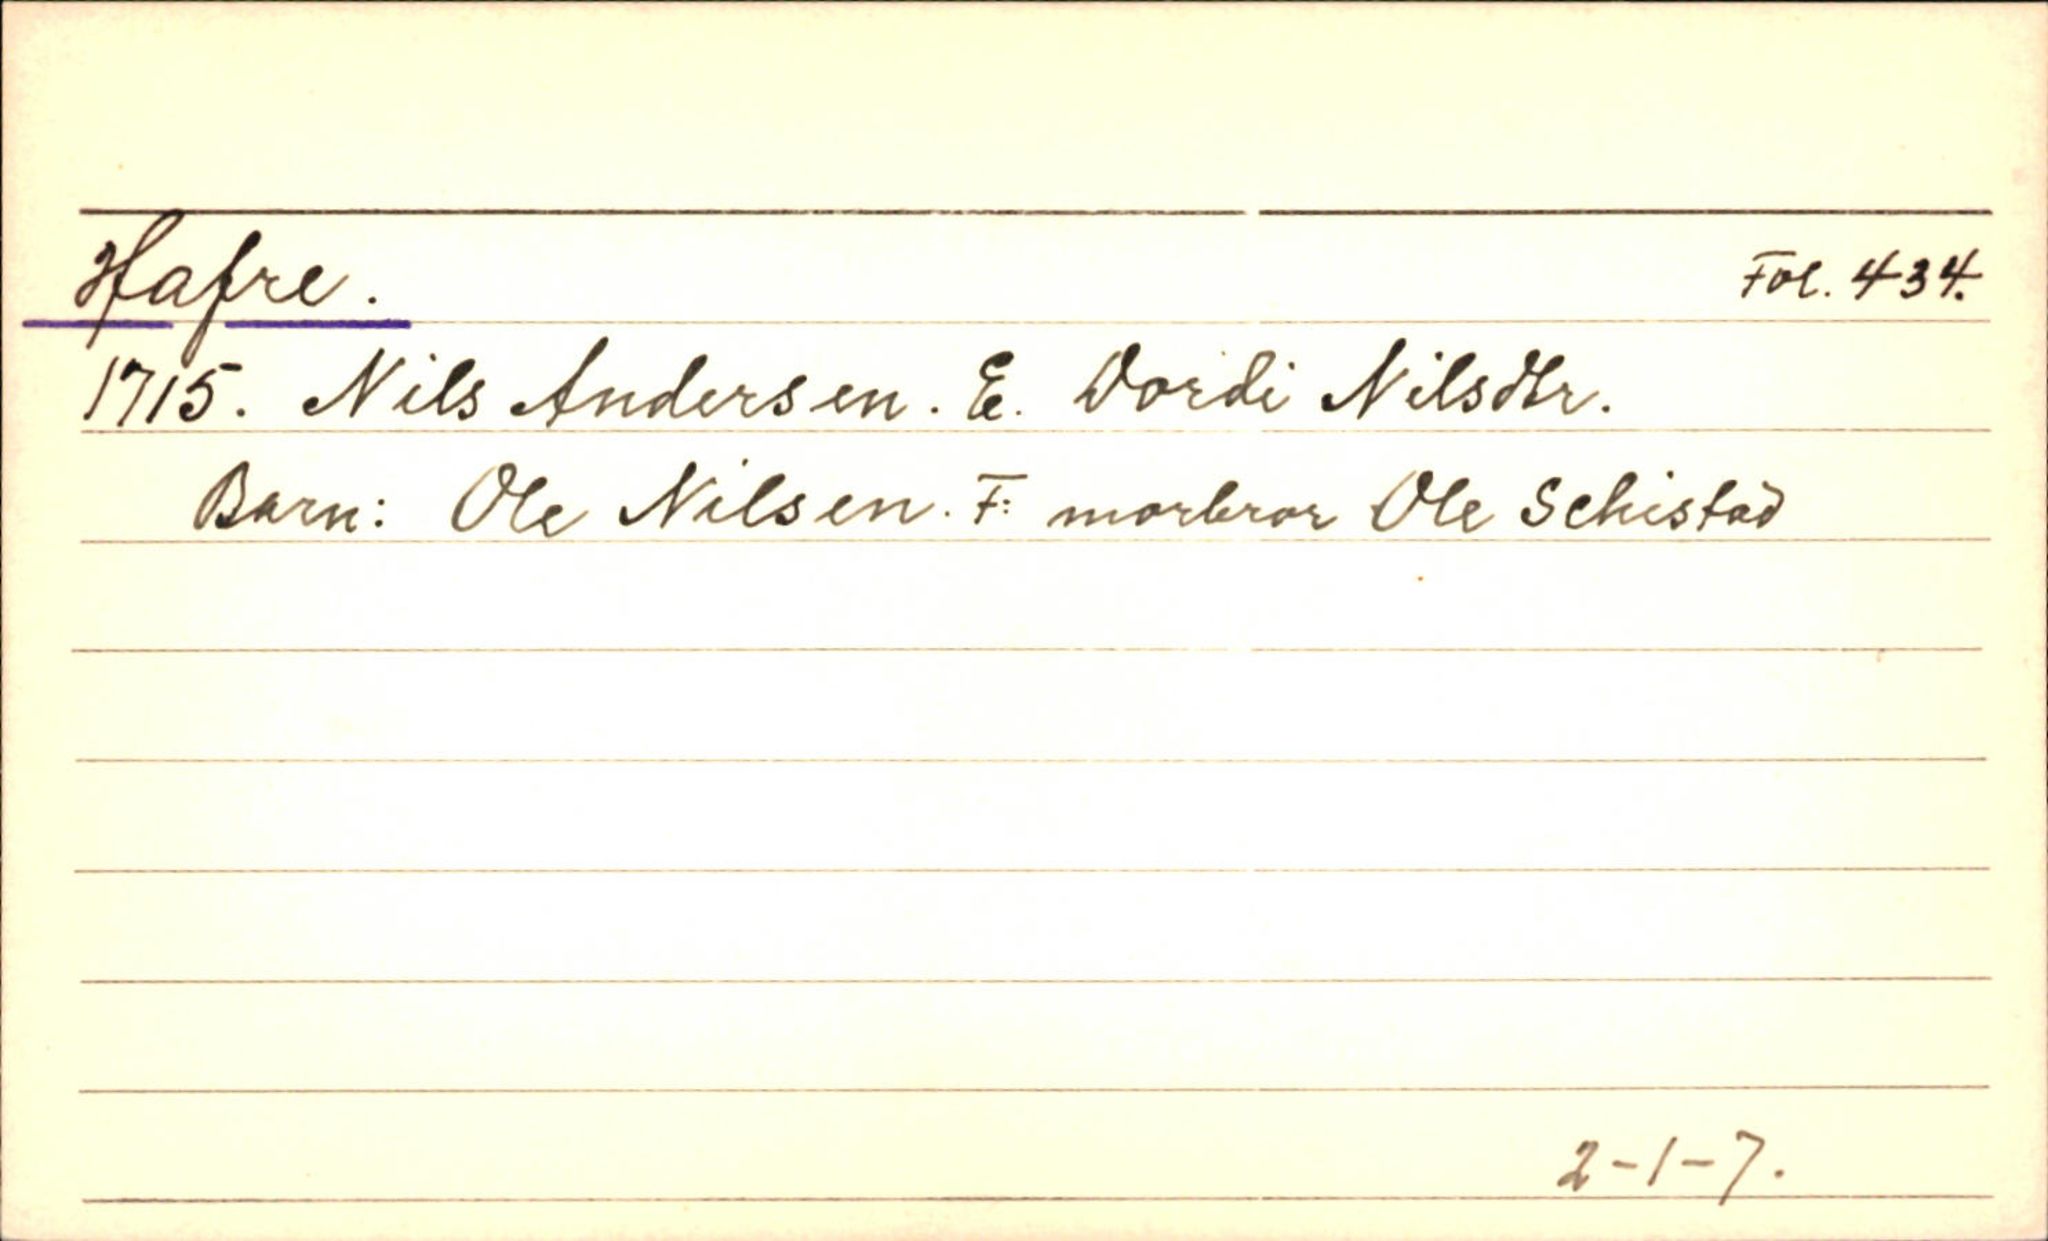 Hafre. Fol. 434.
1715. Nils Andersen. E. Dordi Nilsdtr.
Barn: Ole Nilsen. F: morbror Ole Schistad
2-1-7.